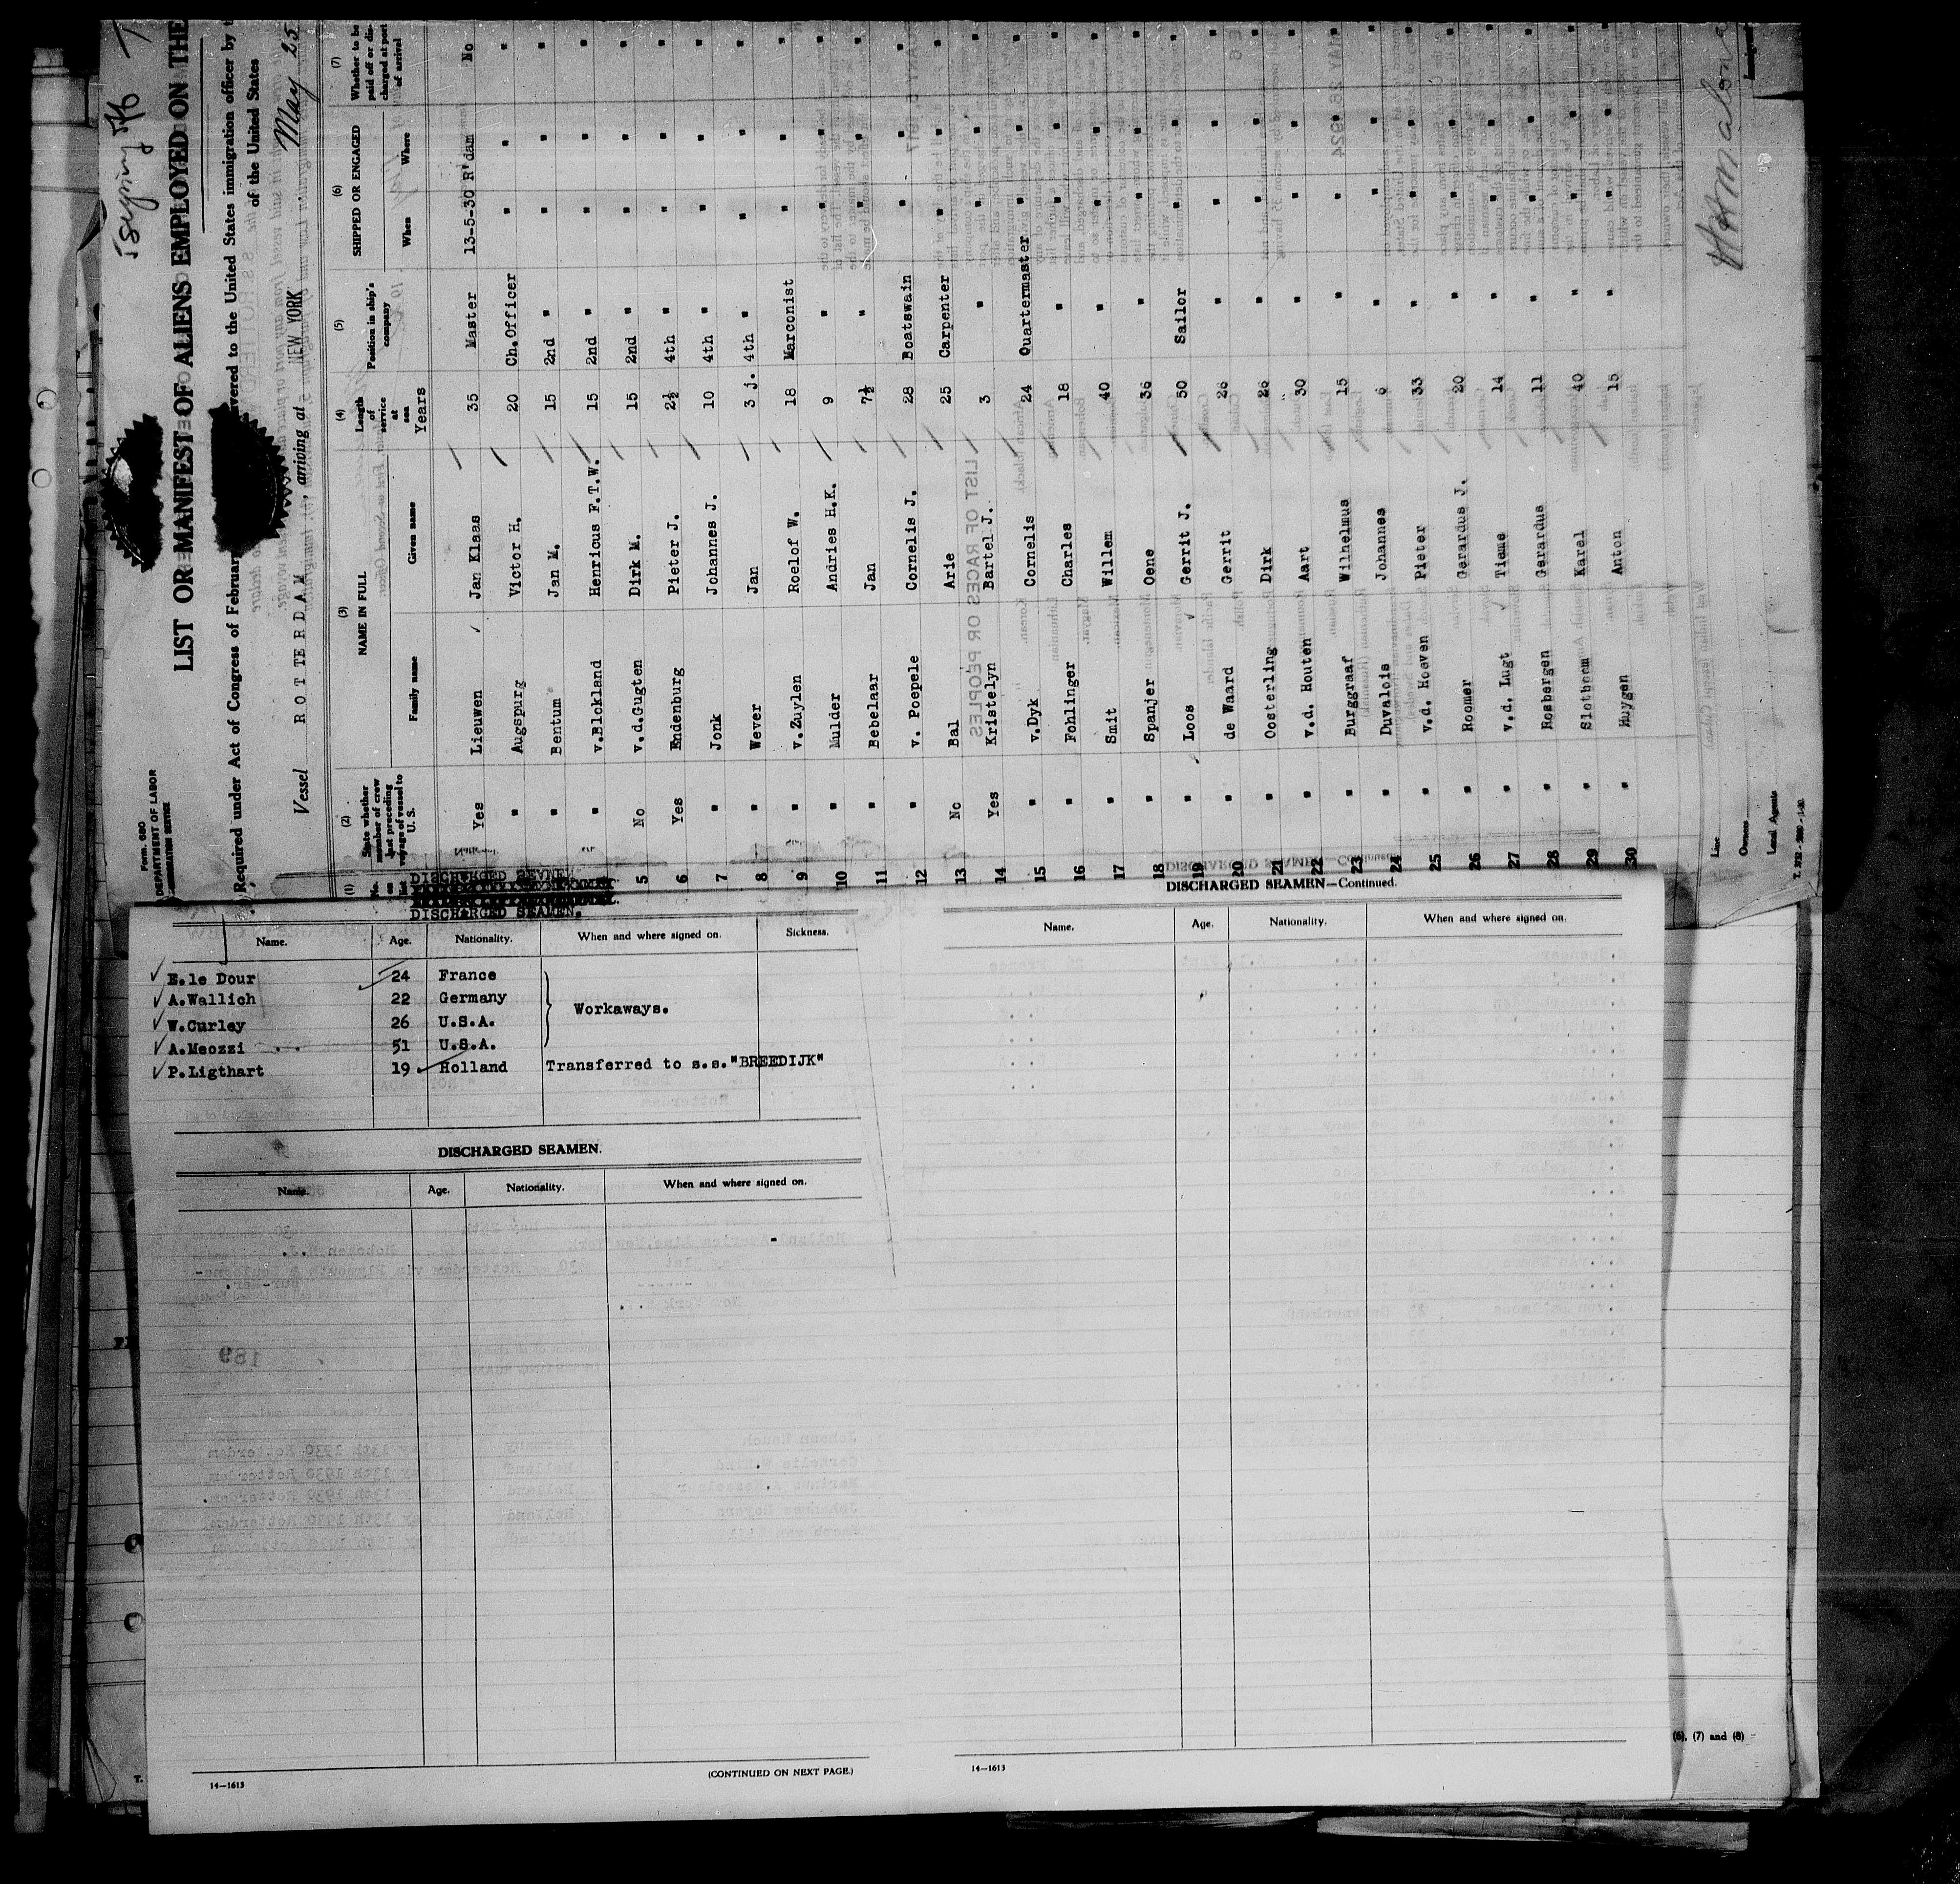 Form 680
DEPARTMENT OF LABOR
IMMIGRATION SERVICE
LIST OR MANIFEST OF ALIENS EMPLOYED ON THE
Required under Act of Congress of February
vered to the United States immigration officer by t
of the United States
Vessel ROTTERDAM, arriving at NEW YORK May 25
(1) (2) (3) (4) (5) (6) (7)
No. on list
State whether member of crew last preceding voyage of vessel to U. S.
NAME IN FULL
Family name Given name
Length of service at sea
Years
Position in ship's company
SHIPPED OR ENGAGED
When Where
Whether to be paid off or discharged at port of arrival
Yes Lieuwen Jan Klaas 35 Master 13-5-30 R'dam No
" Augspurg Victor H. 20 Ch.Officer " " "
" Bentum Jan M. 15 2nd " " " "
" v.Blokland Henricus F.T.W. 15 2nd " " " "
5 No v.d.Gugten Dirk M. 15 2nd " " " "
6 Yes Endenburg Pieter J. 2½ 4th " " " "
7 " Jonk Johannes J. 10 4th " " " "
8 " Wever Jan 3 j. 4th " " " "
9 " v.Zuylen Roelof W. 18 Marconist " " "
10 " Mulder Andries H.K. 9 " " " "
11 " Bebelaar Jan 7½ " " " "
12 " v. Poepele Cornelis J. 28 Boatswain " " "
13 No Bal Arie 25 Carpenter " " "
14 Yes Kristelyn Bartel J. 3 " " " "
15 " v.Dyk Cornelis 24 Quartermaster " " "
16 " Fohlinger Charles 18 " " " "
17 " Smit Willem 40 " " " "
18 " Spanjer Oene 36 " " " "
19 " Loos Gerrit J. 50 Sailor " " "
20 " de Waard Gerrit 26 " " " "
21 " Oosterling Dirk 26 " " " "
22 " v.d. Houten Aart 30 " " " "
23 " Burggraaf Wilhelmus 15 " " " "
24 " Duvalois Johannes 6 " " " "
25 " v.d. Hoeven Pieter 33 " " " "
26 " Roomer Gerardus J. 20 " " " "
27 " v.d. Lugt Tieme 14 " " " "
28 " Rosbergen Gerardus 11 " " " "
29 " Slotboom Karel 40 " " " "
30 " Huygen Anton 15 " " " "
Line
Owners
Local Agents
DISCHARGED SEAMEN.
DISCHARGED SEAMEN.
Name. Age. Nationality. When and where signed on. Sickness.
E.le Dour 24 France
A.Wallich 22 Germany
Workaways.
W.Curley 26 U.S.A.
A.Meozzi 51 U.S.A.
P.Ligthart 19 Holland Transferred to s.s."BREEDIJK"
DISCHARGED SEAMEN.
Name. Age. Nationality. When and where signed on.
14—1613
(CONTINUED ON NEXT PAGE.)
DISCHARGED SEAMEN—Continued.
Name. Age. Nationality. When and where signed on.
14—1613
(6), (7) and (8)